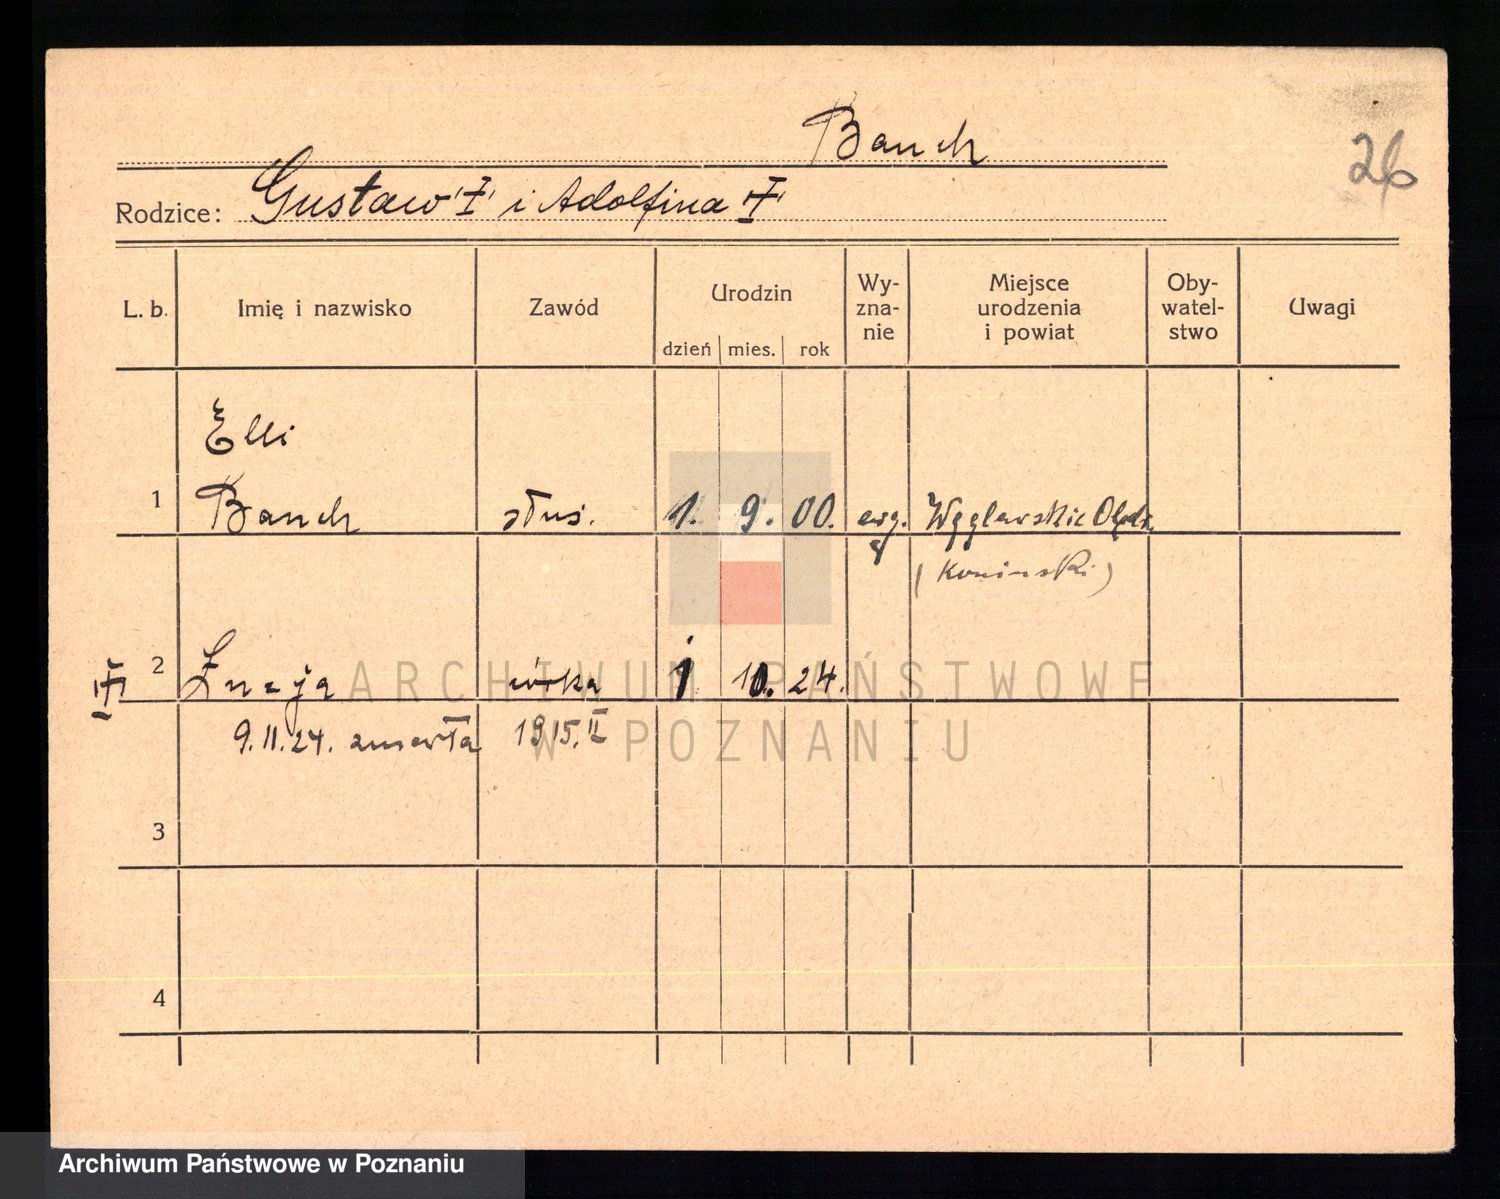 Bauch
26
Rodzice: Gustaw i Adolfina
L. b. Imię i nazwisko Zawód Urodzin dzień mies. rok Wy-zna-nie Miejsce urodzenia i powiat Oby-watel-stwo Uwagi
Elli
1 Bauch służ. 1. 9. 00. ewg. Węglewskie Olędr.
(Koniński)
2 Łucja córka 1 10. 24.
9.11.24. zmarła 1915.II
3
4
ARCHIWUM PAŃSTWOWE
W POZNANIU
Archiwum Państwowe w Poznaniu